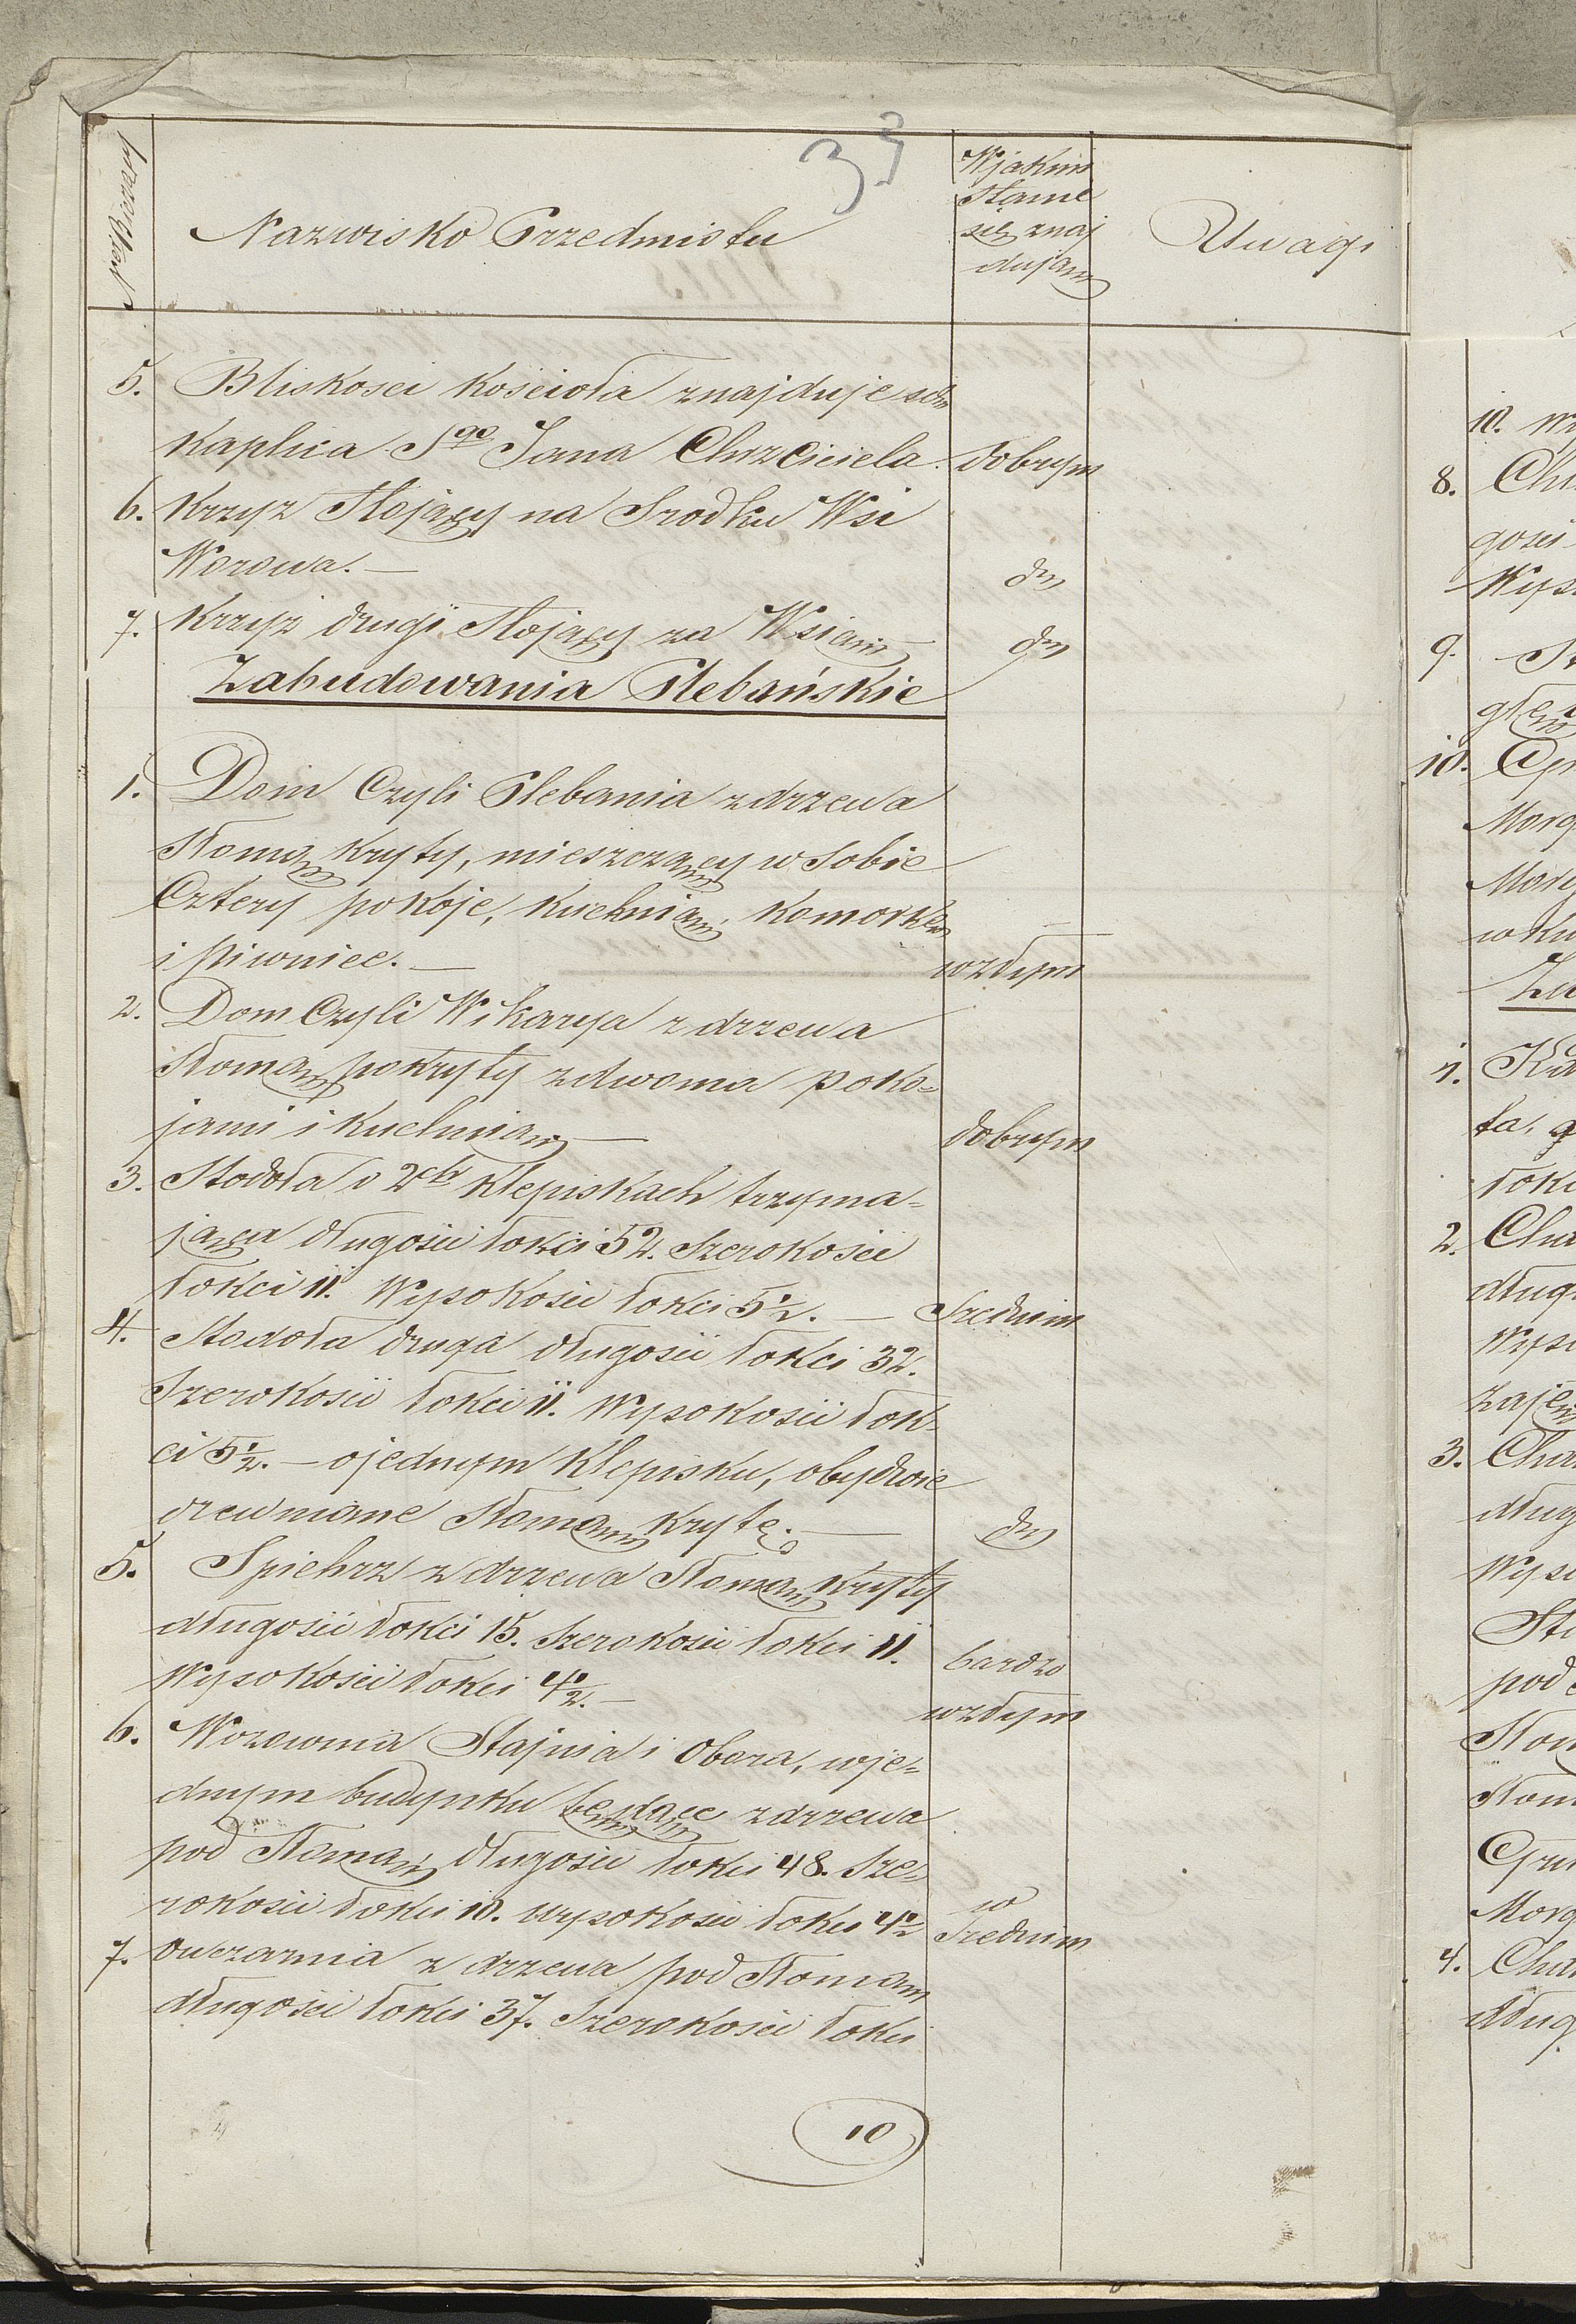 33
Nazwisko Przedmiotu
W jakim
Stanie
się znaj
dują
Uwagi
5. Bliskosci kościoła znajduje się
kaplica Sgo Jana Chrzciciela. dobrym
6. Krzyz Stojący na Srodku Wsi
Worowa. — do
7. Krzyż drugi Stojący za Wsią do
Zabudowania Plebańskie
1. Dom Czyli Plebania z drzewa
Słomą kryty, mieszczący w Sobie
Cztery pokoje, kuchnią, komorkę
i piwnice. — w złym
2. Dom Czyli Wikarya z drzewa
Słomą pokryty z dwoma poko=
jami i kuchnią — dobrym
3. Stodoła o 2ch klepiskach trzyma=
jąca długości łokci 52. Szerokości
łokci 11. Wysokości łokci 5½. — Srednim
4. Stodoła druga długości łokci 32.
Szerokości łokci 11. Wysokości łok=
ci 5½. — o jednym Klepisku, obydwie
drewniane Słomą kryte. — do
5. Spichrz z drzewa Słomą kryty
długości łokci 15. Szerokości łokci 11. bardzo
Wysokości łokci 4½. — w złym
6. Wozownia Stajnia i Obora, w je=
dnym budynku będące z drzewa
pod Słomą długości łokci 48. Sze=
rokości łokci 10. wysokości łokci 4½ w Srednim
7. Owczarnia z drzewa pod Słomą
długości łokci 37. Szerokości łokci
10
10.
8.
gości
Wys
9.
10.
Morg
w ku
1.
ta,
łokc
2.
długo
wyso
zaję
3.
długo
Wyso
pod
Słom
Morg
4.
dług